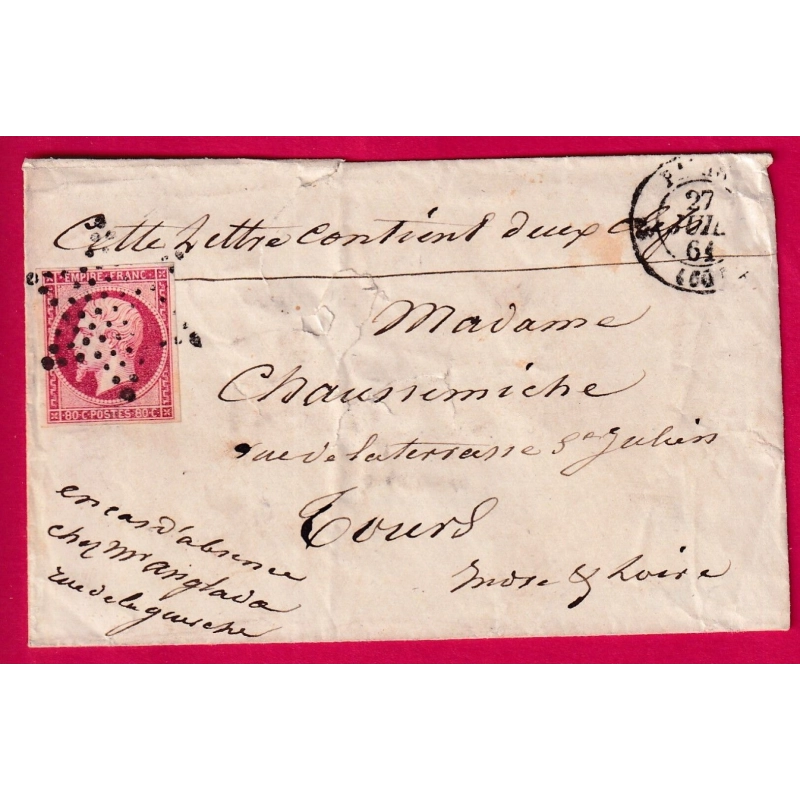 Cette Lettre contient deux clefs
27
JUIL
61
(60)
EMPIRE FRANC
80·C·POSTES·80·C
Madame
Chaussemiche
rue de la terrasse St Julien
Tours
Indre & Loire
en cas d'absence
chez Mr Anglada
rue de la guerche